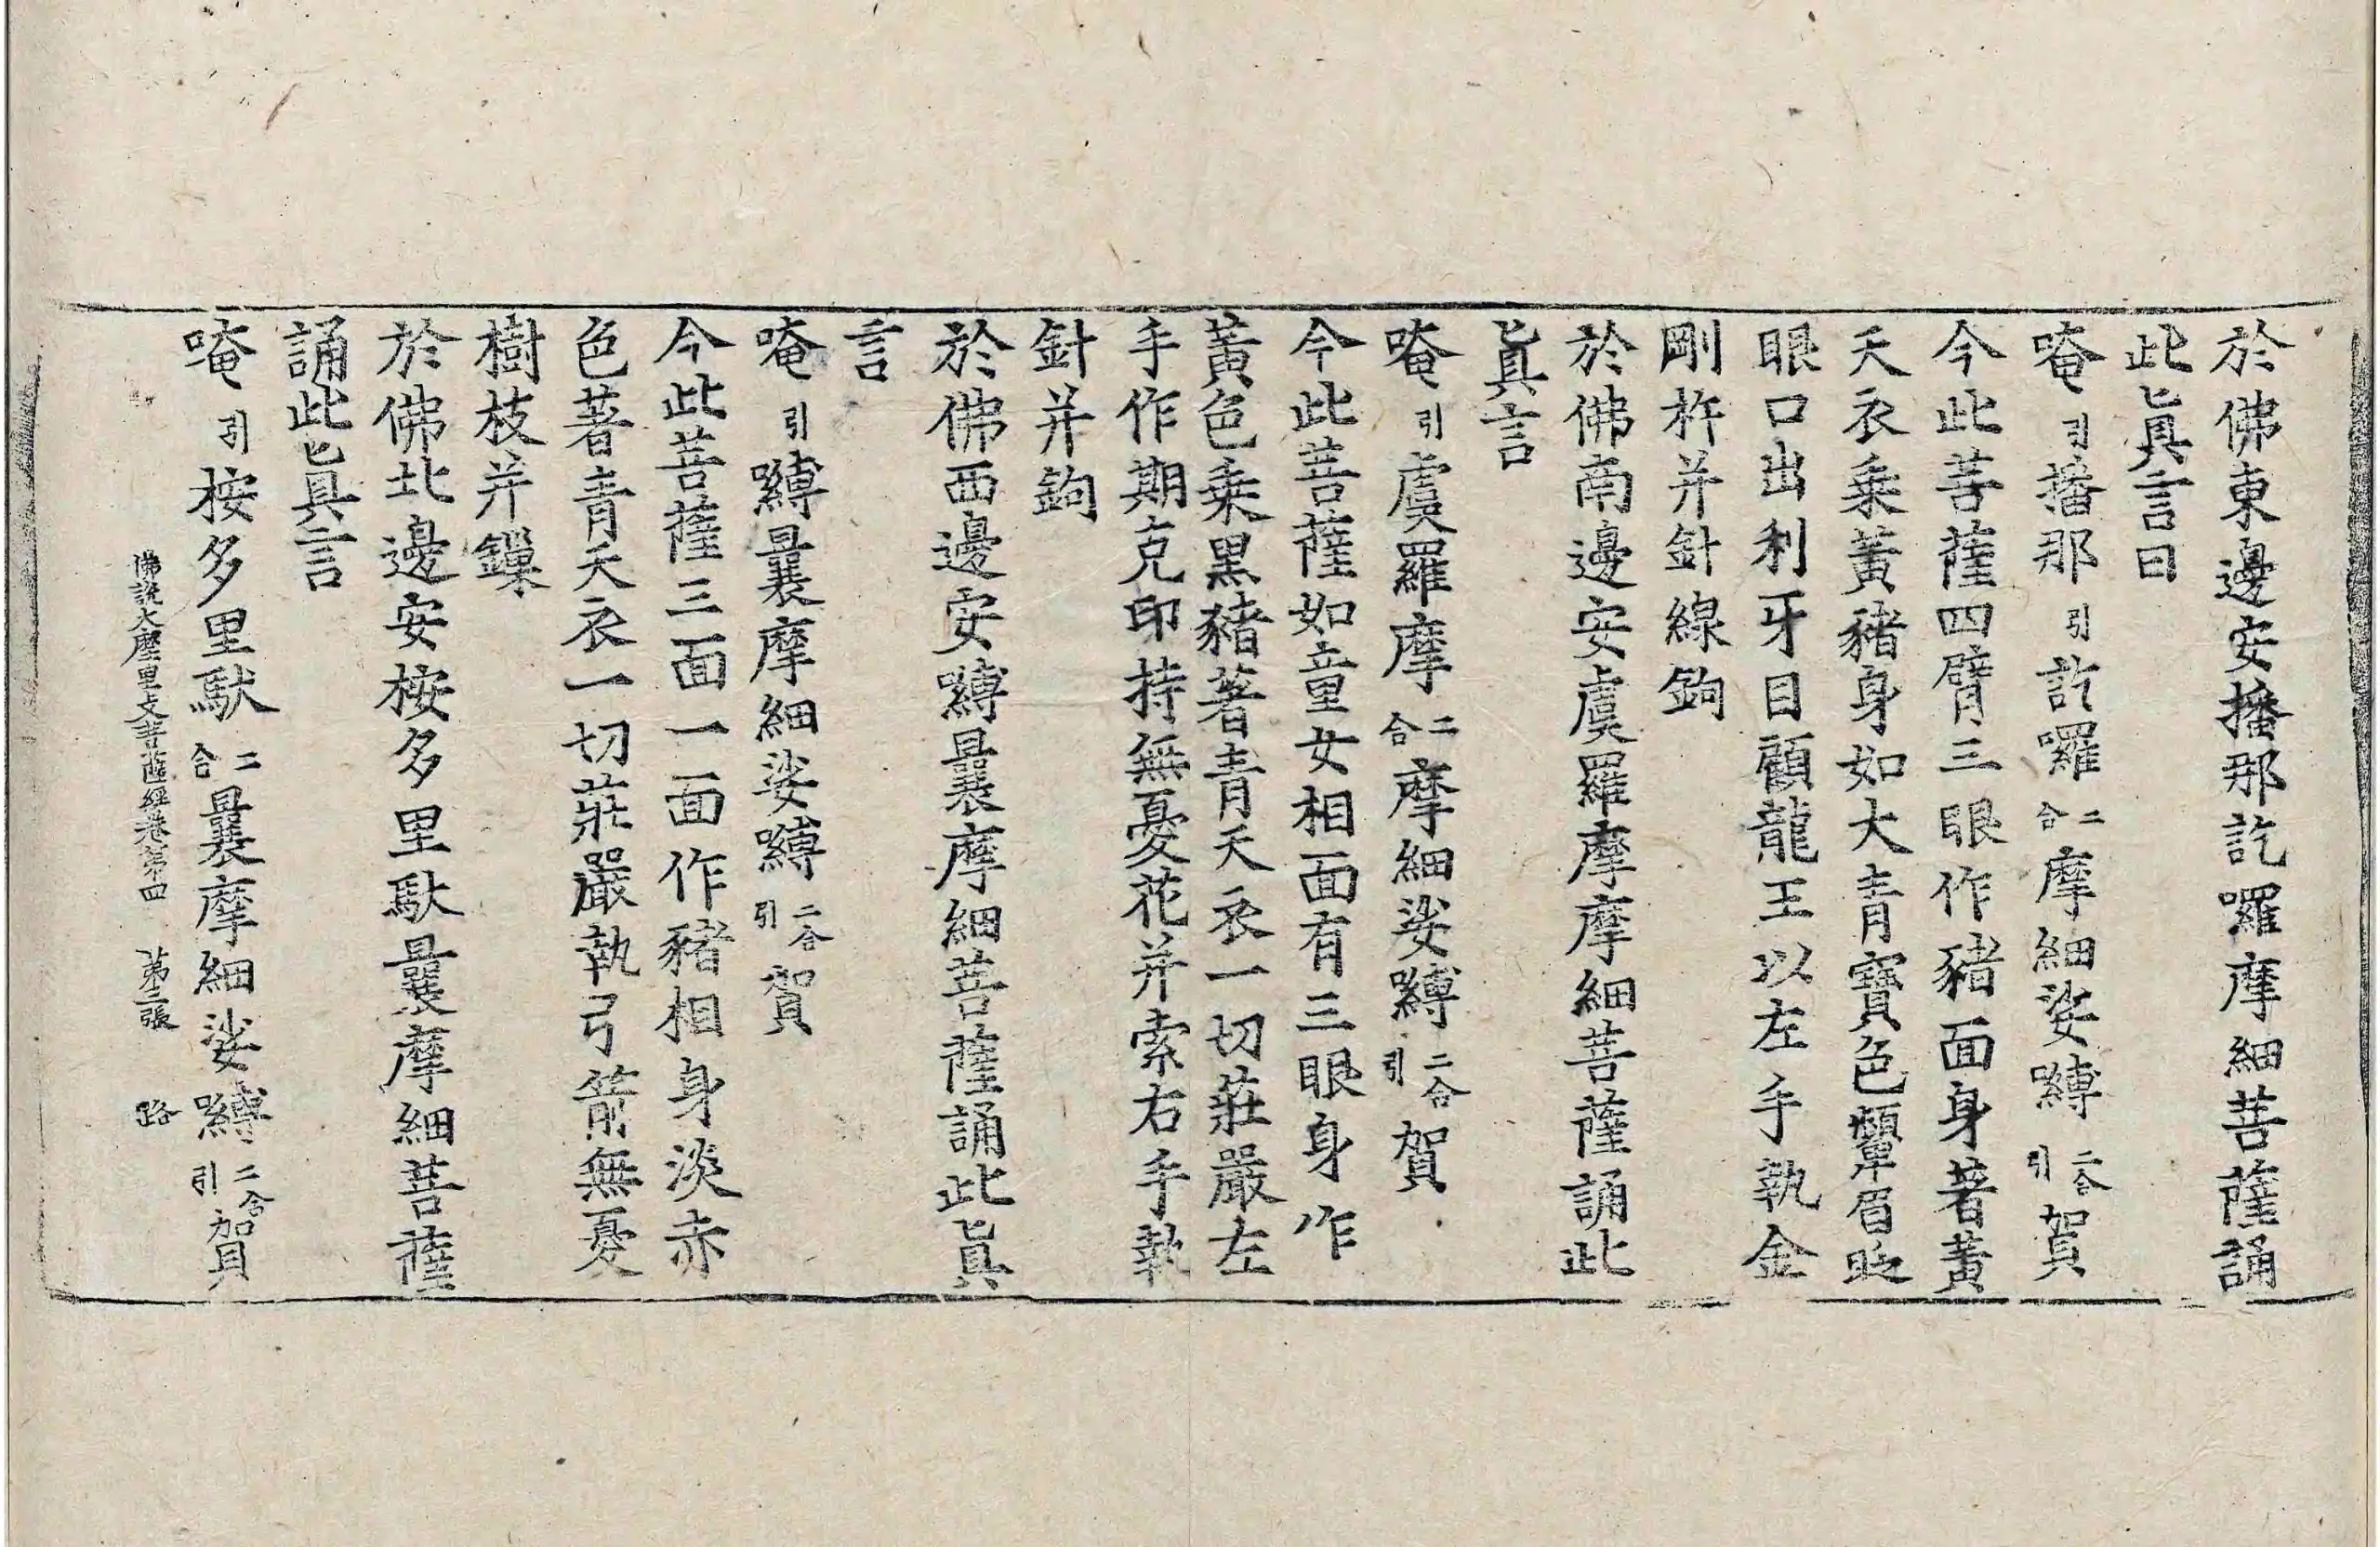 於佛東邊安播那訖囉摩細菩薩誦
此眞言曰
唵引播那引訖囉二合摩細娑嚩二合引賀
今此菩薩四臂三眼作豬面身著黃
天衣乘黃豬身如大青寶色顰眉眨
眼口出利牙目顧龍王以左手執金
剛杵并針線鉤
於佛南邊安虞羅摩摩細菩薩誦此
眞言
唵引虞羅摩二合摩細娑嚩二合引賀
今此菩薩如童女相面有三眼身作
黃色乘黑豬著青天衣一切莊嚴左
手作期克印持無憂花并索右手執
針并鉤
於佛西邊安嚩曩摩細菩薩誦此眞
言
唵引嚩曩摩細娑嚩二合引賀
今此菩薩三面一面作豬相身淡赤
色著青天衣一切莊嚴執弓箭無憂
樹枝并鏁
於佛北邊安桉多里馱曩摩細菩薩
誦此眞言
唵引桉多里馱二合曩摩細娑嚩二合引賀
佛說大摩里支菩薩經卷第四 第二張 路